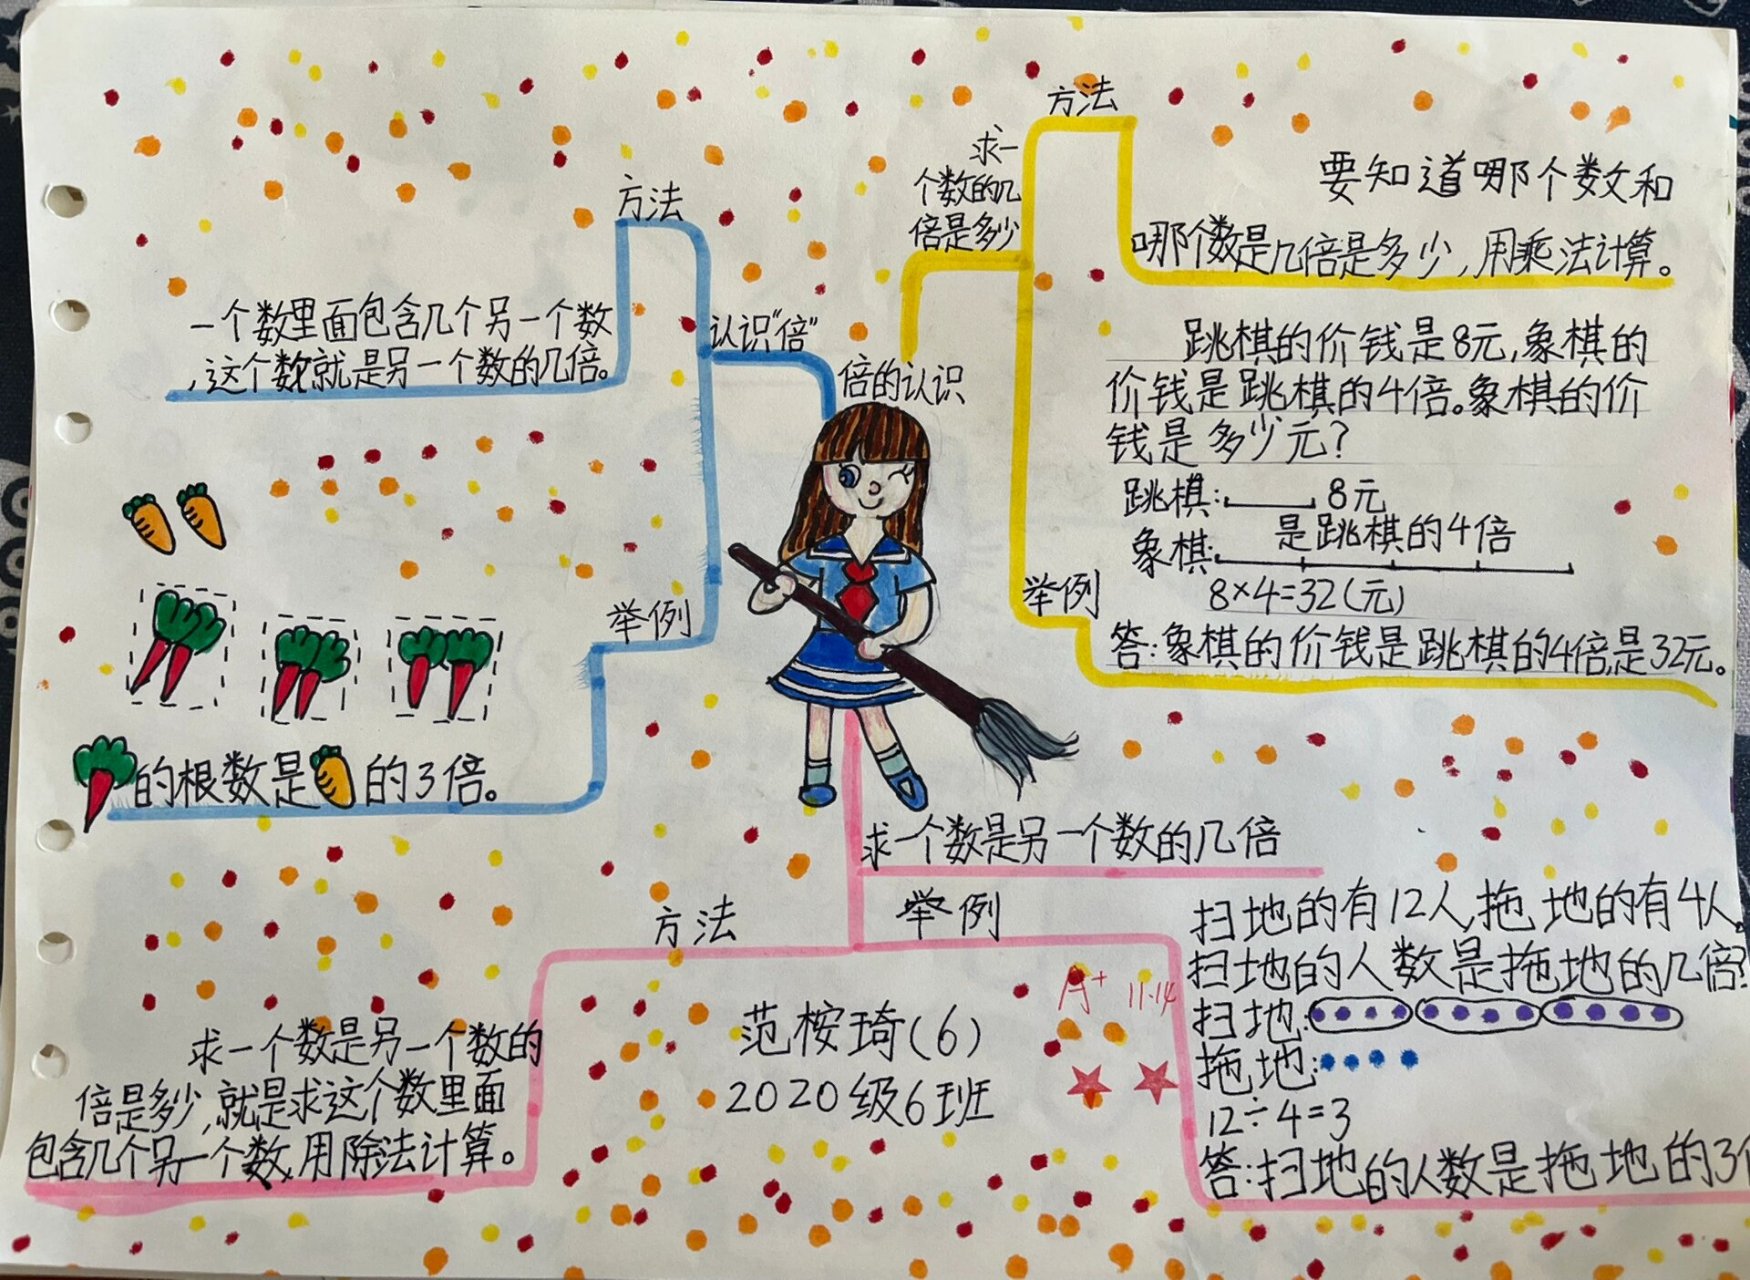 倍的认识
认识“倍”
方法
一个数里面包含几个另一个数
,这个数就是另一个数的几倍。
举例
的根数是
的3倍。
求一
个数的几
倍是多少
方法
要知道哪个数和
哪个数是几倍是多少,用乘法计算。
举例
跳棋的价钱是8元,象棋的
价钱是跳棋的4倍。象棋的价
钱是多少元?
跳棋: 8元
是跳棋的4倍
象棋:
8×4=32(元)
答:象棋的价钱是跳棋的4倍,是32元。
求一个数是另一个数的几倍
方法
求一个数是另一个数的
倍是多少,就是求这个数里面
包含几个另一个数,用除法计算。
举例
扫地的有12人,拖地的有4人。
扫地的人数是拖地的几倍?
扫地:
拖地:
12÷4=3
答:扫地的人数是拖地的3
范桉琦(6)
2020级6班
A+ 11.14